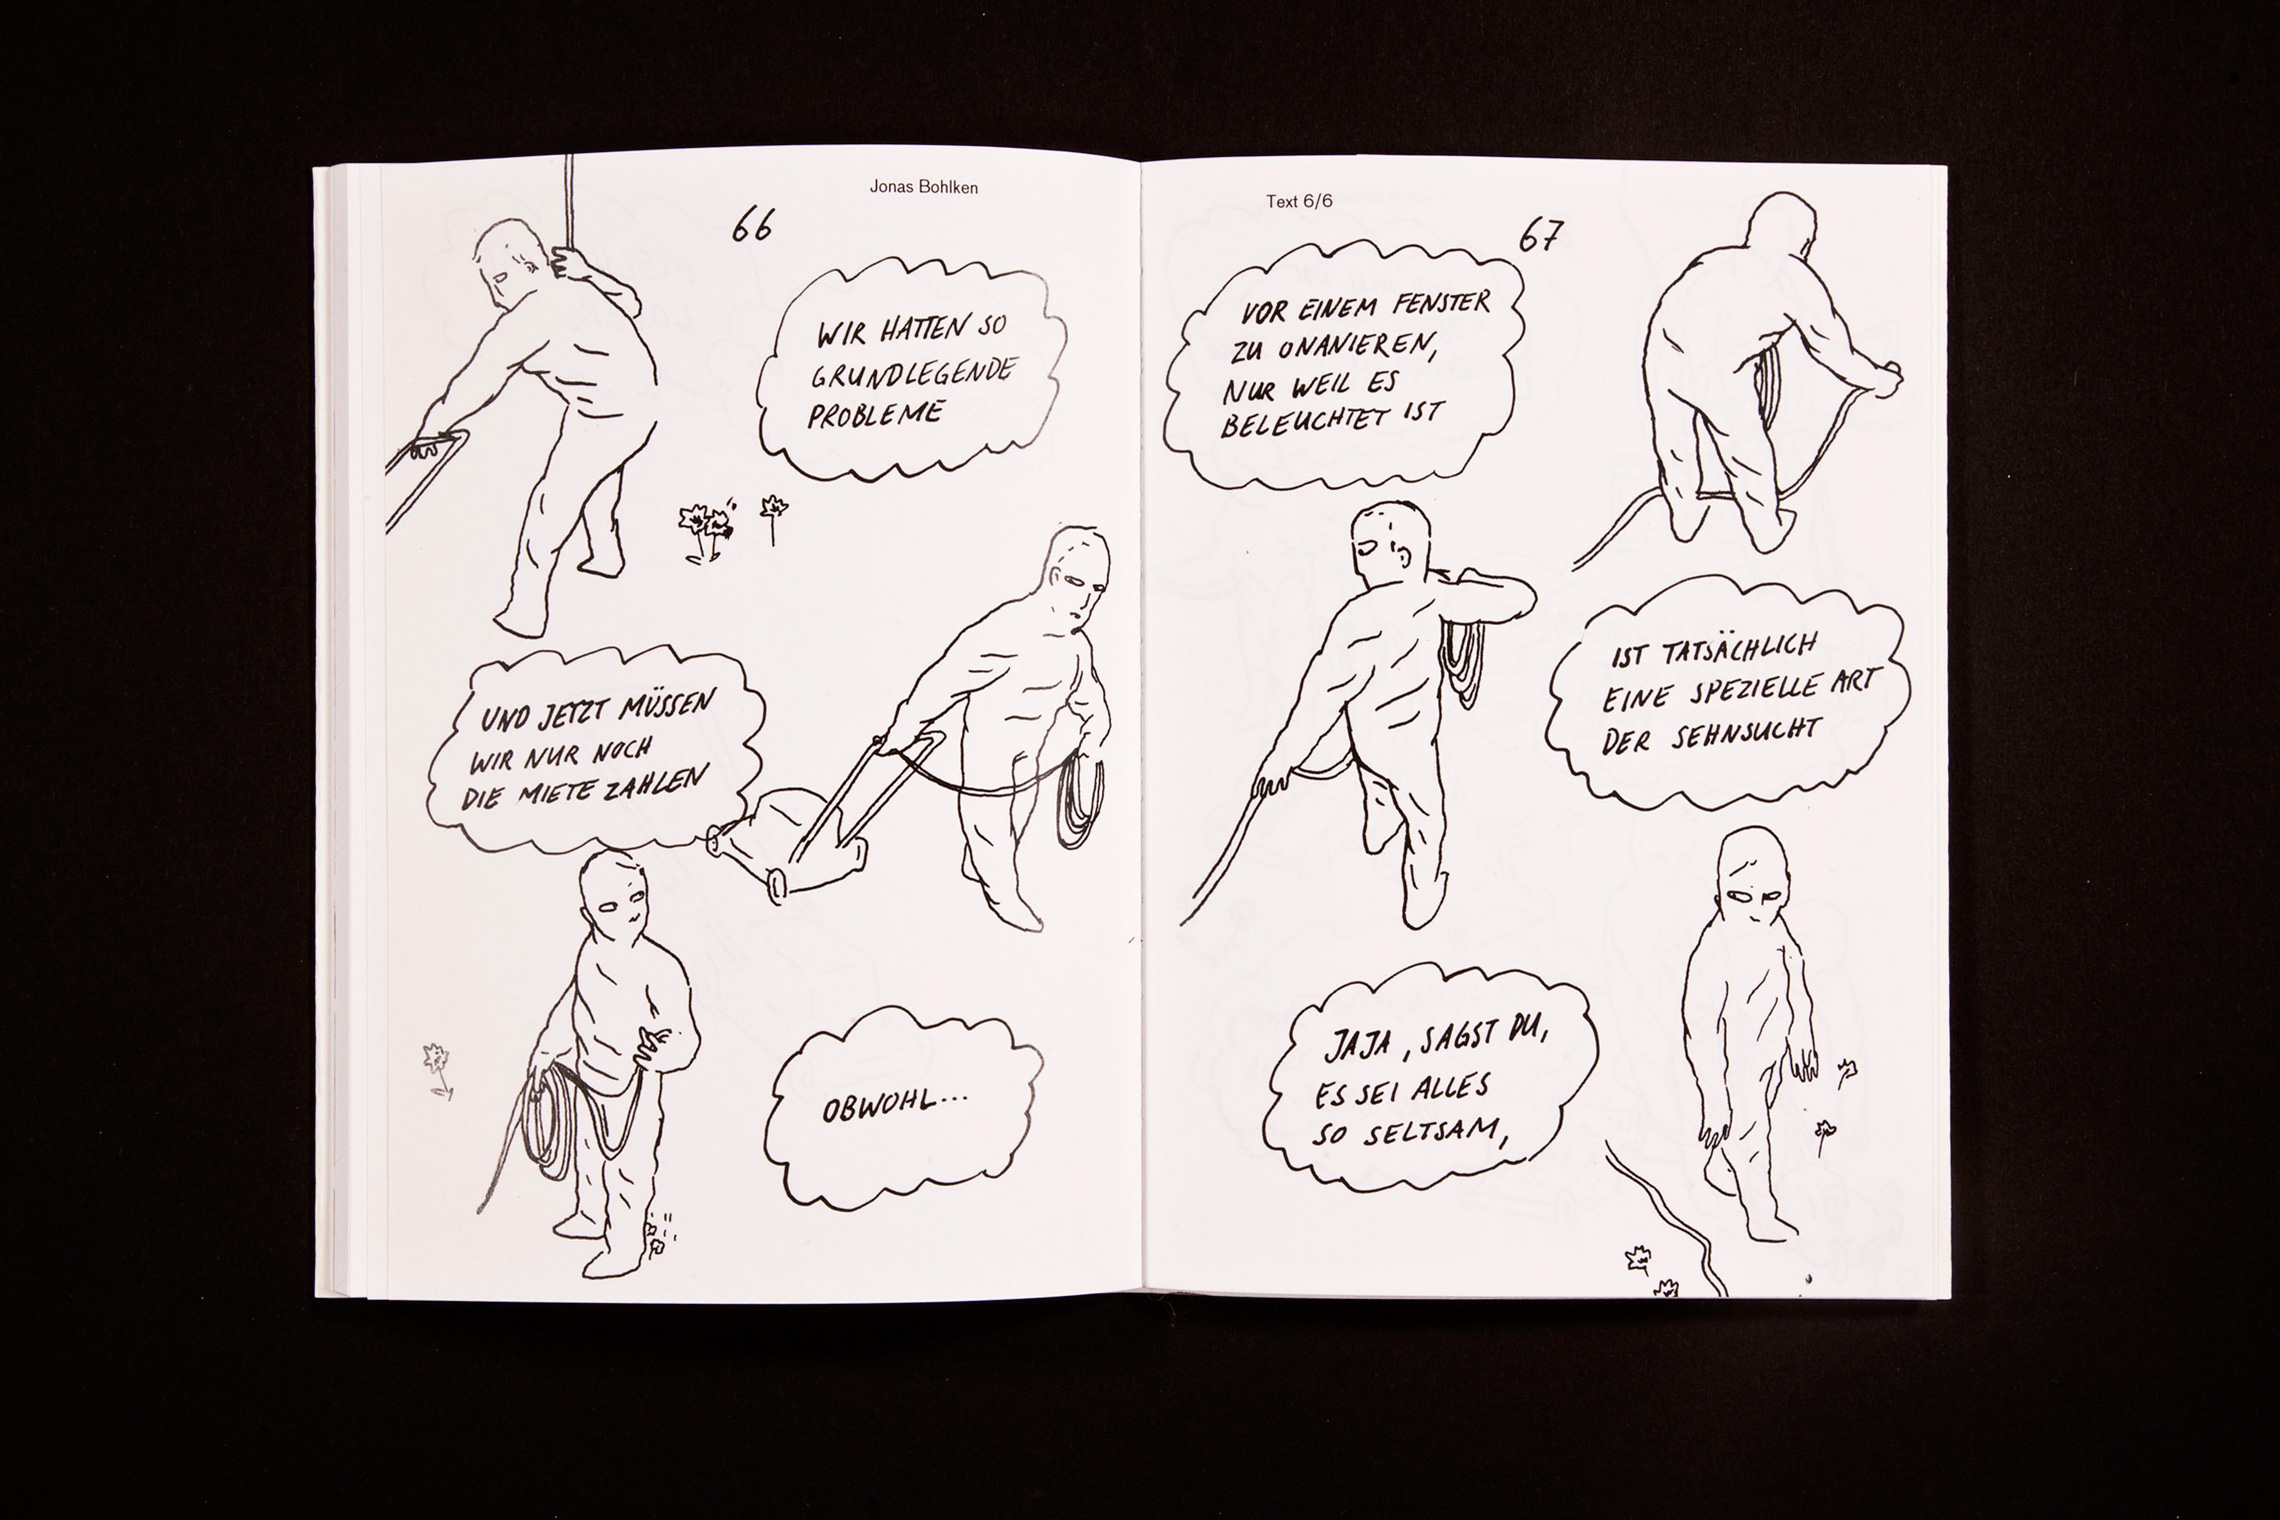 Jonas Bohlken
66
WIR HATTEN SO
GRUNDLEGENDE
PROBLEME
UND JETZT MÜSSEN
WIR NUR NOCH
DIE MIETE ZAHLEN
OBWOHL...
Text 6/6
67
VOR EINEM FENSTER
ZU ONANIEREN,
NUR WEIL ES
BELEUCHTET IST
IST TATSÄCHLICH
EINE SPEZIELLE ART
DER SEHNSUCHT
JAJA, SAGST DU,
ES SEI ALLES
SO SELTSAM,